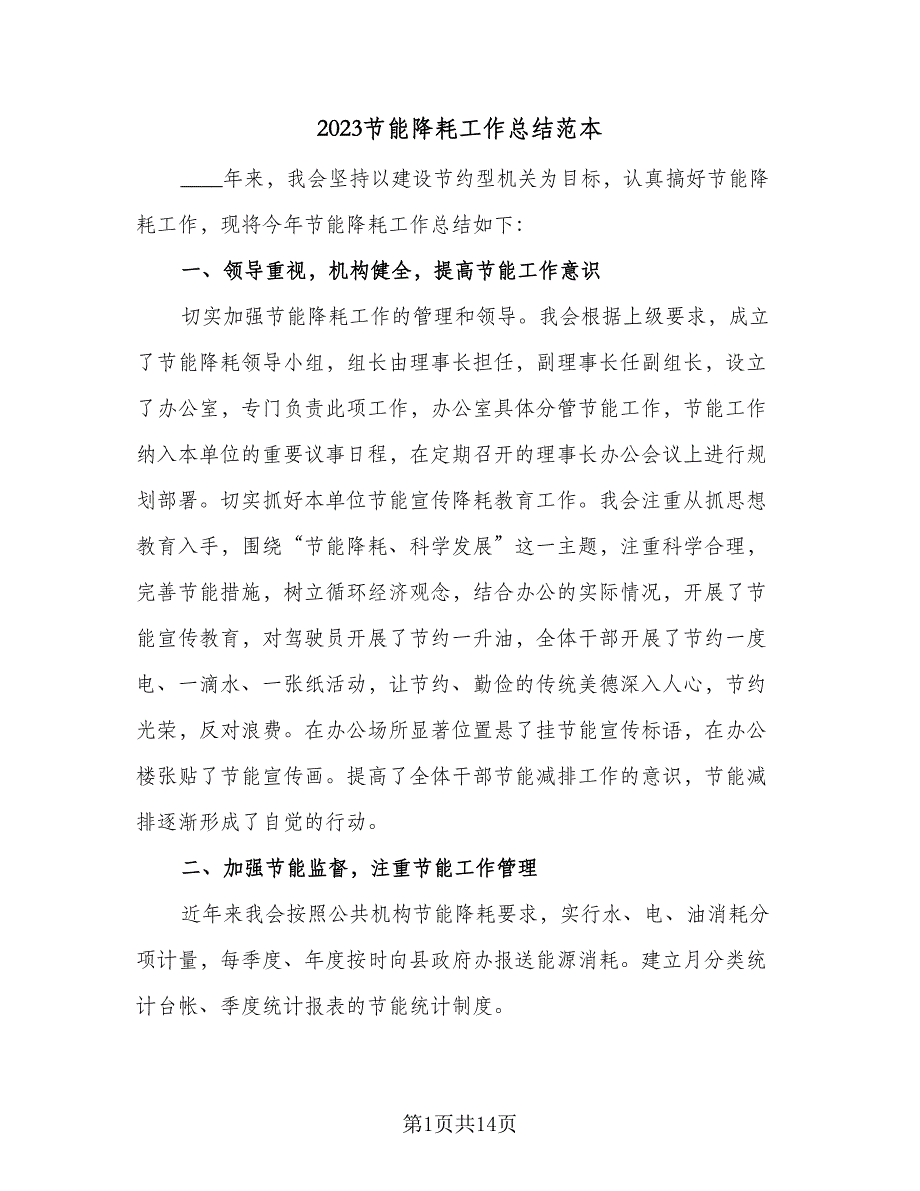 2023节能降耗工作总结范本
____年来，我会坚持以建设节约型机关为目标，认真搞好节能降
耗工作，现将今年节能降耗工作总结如下：
一、领导重视，机构健全，提高节能工作意识
切实加强节能降耗工作的管理和领导。我会根据上级要求，成立
了节能降耗领导小组，组长由理事长担任，副理事长任副组长，设立
了办公室，专门负责此项工作，办公室具体分管节能工作，节能工作
纳入本单位的重要议事日程，在定期召开的理事长办公会议上进行规
划部署。切实抓好本单位节能宣传降耗教育工作。我会注重从抓思想
教育入手，围绕“节能降耗、科学发展”这一主题，注重科学合理，
完善节能措施，树立循环经济观念，结合办公的实际情况，开展了节
能宣传教育，对驾驶员开展了节约一升油，全体干部开展了节约一度
电、一滴水、一张纸活动，让节约、勤俭的传统美德深入人心，节约
光荣，反对浪费。在办公场所显著位置悬了挂节能宣传标语，在办公
楼张贴了节能宣传画。提高了全体干部节能减排工作的意识，节能减
排逐渐形成了自觉的行动。
二、加强节能监督，注重节能工作管理
近年来我会按照公共机构节能降耗要求，实行水、电、油消耗分
项计量，每季度、年度按时向县政府办报送能源消耗。建立月分类统
计台帐、季度统计报表的节能统计制度。
第1页共14页